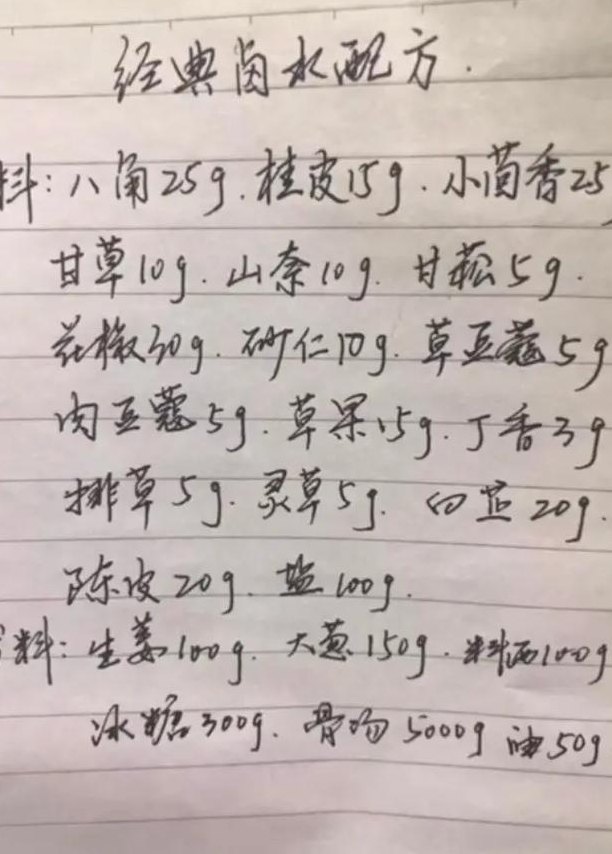 经典卤水配方.
料:八角25g.桂皮15g.小茴香25
甘草10g.山奈10g.甘菘5g.
花椒30g.砂仁10g.草豆蔻5g
肉豆蔻5g.草果15g.丁香3g
排草5g.灵草5g.白芷20g.
陈皮20g.盐100g.
料:生姜100g.大葱150g.料酒100g
冰糖300g.骨汤5000g 油50g